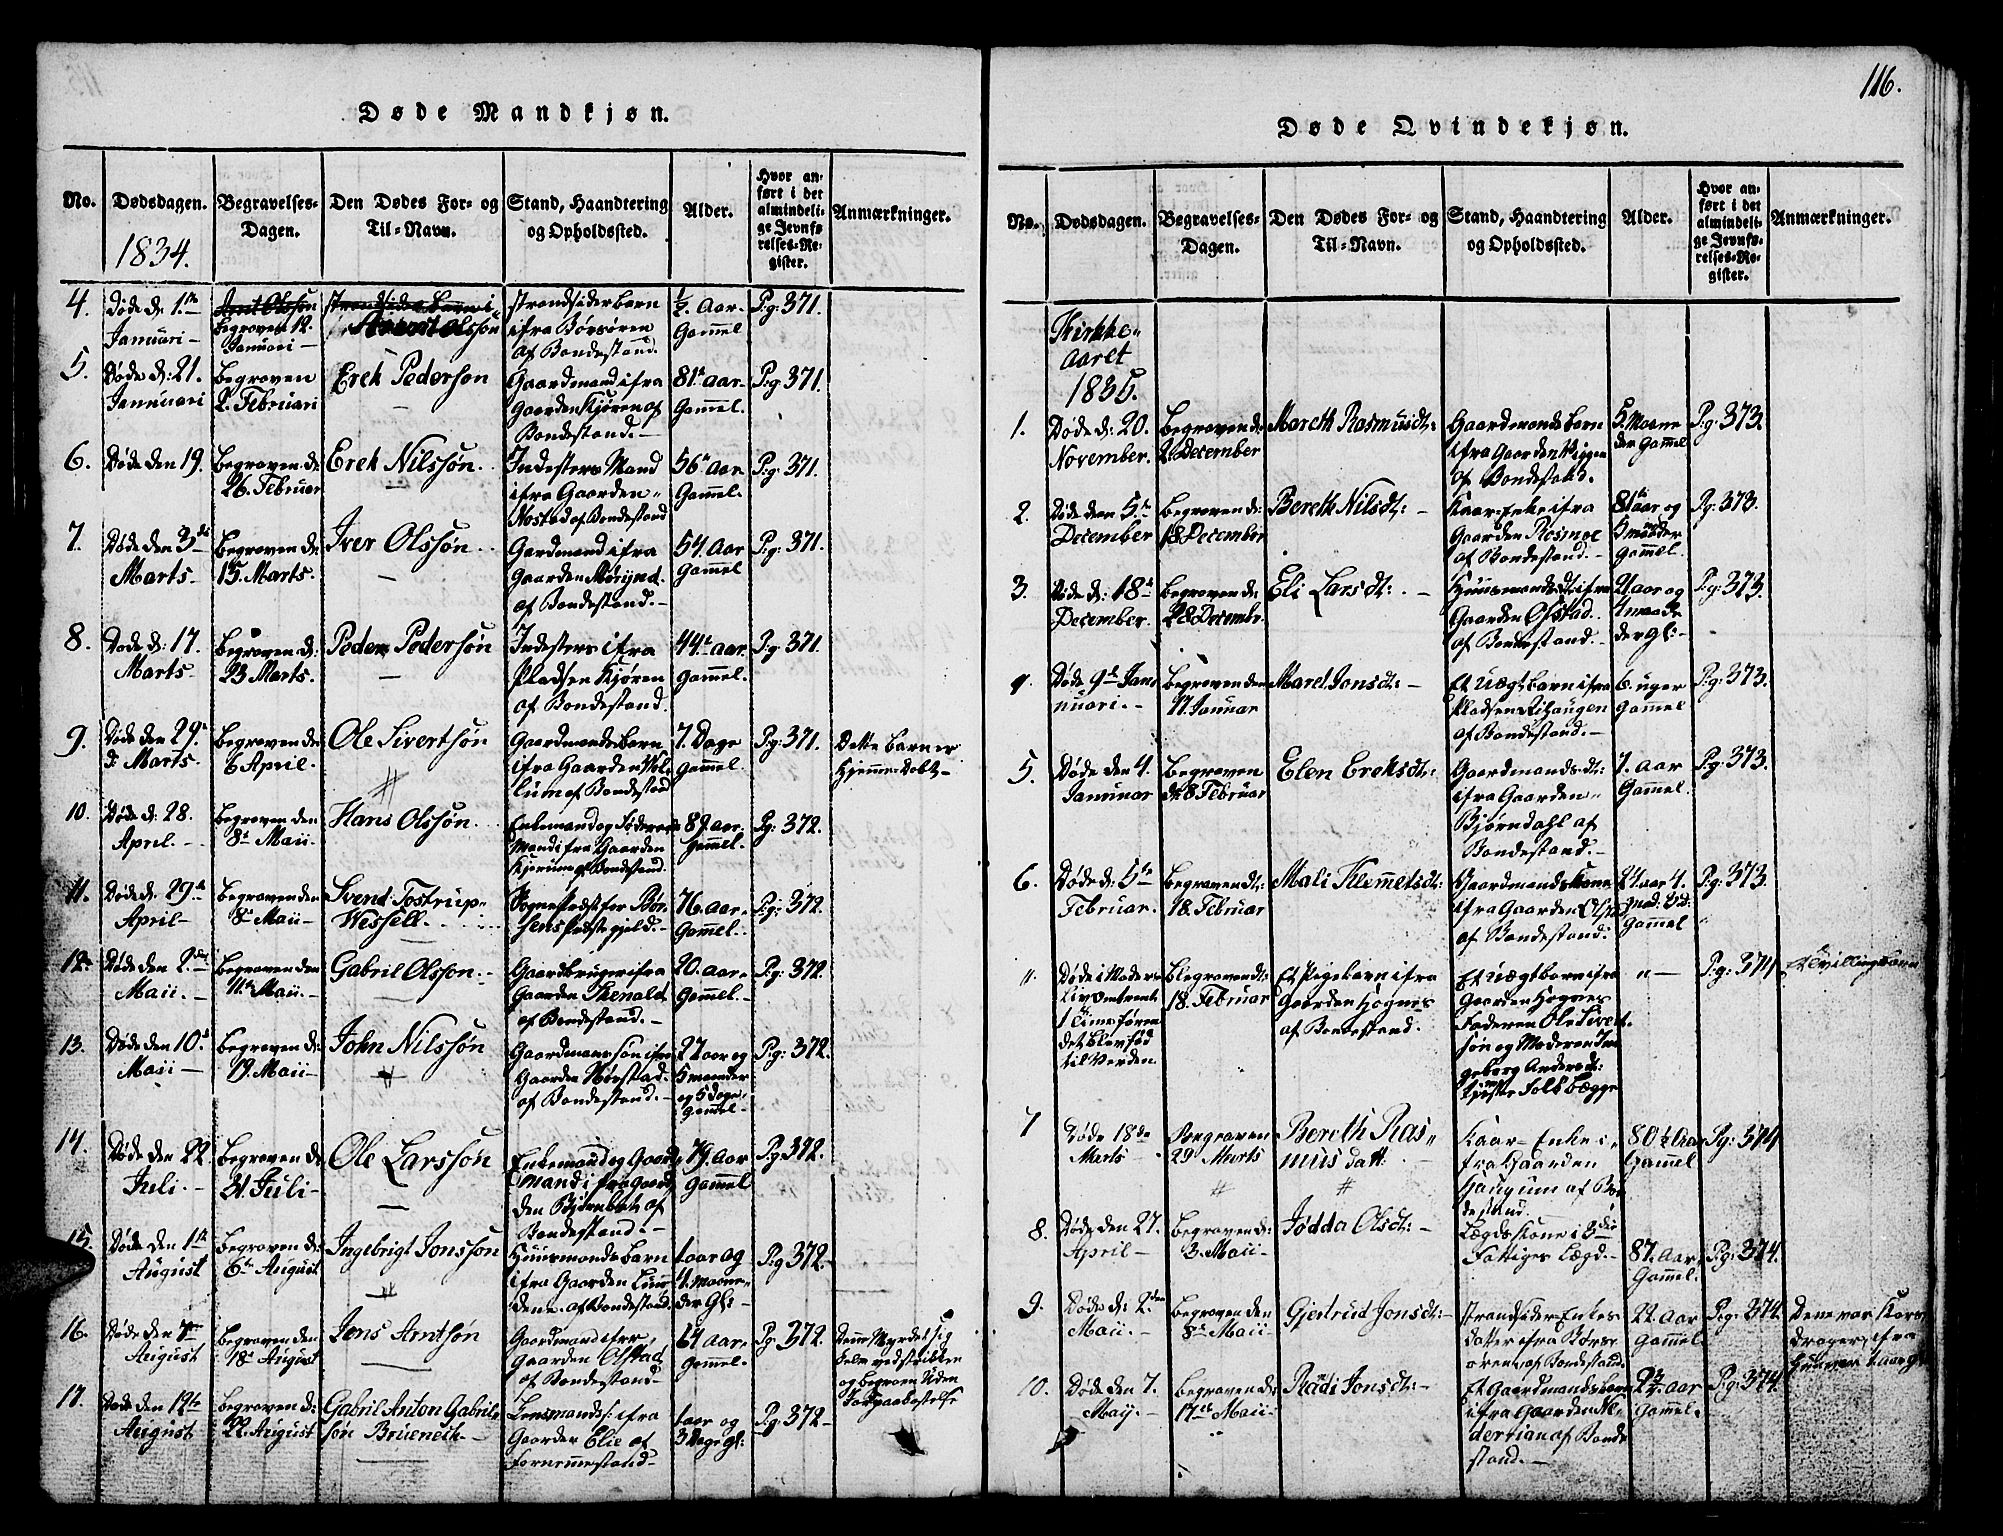 116.
Døde Mandkjøn.
No.
Dødsdagen.
1834.
Begravelses-
Dagen.
Den Dødes For- og
Til-Navn.
Stand, Haandtering
og Opholdssted.
Alder.
Hvor an-
ført i det
almindeli-
ge Jevnfø-
relses-Re-
gister.
Anmærkninger.
4.
Døde d: 1ste
Januari
begraven 12.
Januari
Arent Olssøn
Strandsiderbarn
ifra Børsøren
af Bondestand.
½ Aar
Gammel
Pg: 371.
5.
Døde d: 21.
Januari
begraven
2. Februari
Erek Pedersøn
Gaardmand ifra
Gaarden Kjøren af
Bondestand.
81 aar
Gammel.
Pg: 371.
6.
Døde den 19.
begraven d:
26. Februar
Erek Nilssøn
Indesters Mand
ifra Gaarden
af Bondestand
56 aar
Gammel.
Pg: 371.
7.
Døde den 3de
Marts
begraven d:
15. Marts.
Iver Olssøn
Gardmand ifra
Gaarden
af Bondestand.
54. aar
Gammel
Pg: 371.
8.
Døde d: 17.
Marts
begraven d:
23 Marts.
Peder Pedersøn
Indesters ifra
Pladsen Kjøren
af Bondestand.
44 aar
Gammel.
Pg: 371.
9.
Døde den 29.
d: Marts
begraven d:
6 April.
Ole Sivertsøn
Gaardmandsbarn
ifra Gaarden
af Bondestand
7. Dage
Gammel
Pg: 371.
Dette barn er
Hjemme-Døbt
10.
Døde d: 28.
April.
begraven den
8de Maii.
Hans Olssøn
Enkemand og Føderaads
Mand ifra Gaarden
af Bondestand.
87. aar
Gammel.
Pg: 372.
11.
Døde d: 29de
April
begraven den
8de Maii
Svend Tostrup
Wessell
Sognepræst for Bør-
sens Præstegjeld.
76. aar
Gammel.
Pg: 372.
12.
Døde den 2den
Maii.
begraven den
11te Maii.
Gabril Olssøn
Gaardbruger ifra
Gaarden Skenald
af Bondestand.
20. aar
Gammel
Pg: 372.
13.
Døde den 10de
Maii
begraven d:
19. Maii
John Nilssøn
Gaardmanssøn ifra
Gaarden Nørstad
af Bondestand.
27 aar og
5 maaneder
og 5 dage
Gammel
Pg: 372.
14.
Døde den 22
Juli.
begraven d:
31 Juli
Ole Larssøn
Enkemand og Gaard
mand ifra Gaar-
den
af
Bondestand.
79. aar
Gammel
Pg: 372.
15.
Døde den 1ste
August
begraven d:
6te August
Ingebrigt Jonssøn
Huusmandsbarn
ifra Gaarden Lun-
dene af Bondestand.
1 aar og
4. maane-
der Gl:
Pg 372.
16.
Døde den 7de
August
begraven den
18de August
Jens Arntsøn
Gaardmand ifra
Gaarden Olstad
af Bondestand
64 aar
Gammel.
Pg: 372.
Denne Myrdet sig
selv ved strikken
og begraven Uden
Jordpaakastelse
17.
Døde den 19te
August
begraven d:
22. August
Gabril Anton Gabril-
søn Bruenech
Lensmands: ifra
Gaarden Elie af
Fornemmestand
1 aar og
3 Dage gl:
Pg: 372
Døde Qvindekjøn.
No.
Dødsdagen.
Begravelses-
Dagen.
Den Dødes For- og
Til-Navn.
Stand, Haandtering
og Opholdssted.
Alder.
Hvor an-
ført i det
almindeli-
ge Jevnfø-
relses-Re-
gister.
Anmærkninger.
Kirkke-
aaret
1835.
1.
Døde d: 20.
November.
begraven d:
2 December
Mareth Rasmusdt:
Gaardmands barn
ifra Gaarden Viggen
af Bondestand.
5. Maane
der Gammel
Pg: 373.
2.
Døde den 5te
December
begraven d:
18 December
Bereth Nilsdt:
Kaar-Enke ifra
Gaarden Rosmoe
af Bondestand.
81 aar og
3 maaneder
Gammel.
Pg: 373.
3.
Døde d: 18de
December.
begraven d:
28 Decembr.
Eli Larsdt:
Huusmandsdt: ifra
Gaarden Olstad
af Bondestand.
21 aar og
4 maane
der gl:
Pg: 373.
4
Døde 9de Ja-
nuari.
begraven den
17. Januar
Maret Jonsdt:
Et Uægt barn ifra
Pladsen
af Bondestand.
6. uger
Gammel
Pg: 373.
5.
Døde den 4.
Januar
begraven
d: 8 Februar
Elen Ereksdt:
Gaardmandsdt:
ifra Gaarden
Bjørndahl af
Bondestand.
7. aar
Gammel.
Pg: 373.
6.
Døde d: 5te
Februar.
begraven d:
18. Februar
Mali Klemmetsdt:
Gaardmandskone
ifra Gaarden
af Bondestand.
24 aar 4.
Gammel
Pg: 373.
Døde i Moders
Liv omtrent
1 Time føren
det blev fød
til Verden
begraven d:
18. Februar
Et Pigebarn ifra
Gaarden Høgnes
af Bondestand.
Et Uægtbarn ifra
Gaarden Høgnes
Faderen Ole Sivert-
søn og Moderen In-
geborg Andersdt:
tjenste Folk begge
Pg: 374
Et Tvillingbarn
7
Døde 18de
Marts
Begraven
29 Marts
Bereth Ras-
musdatt.
Kaar-Enke i-
fra Gaarden
Haugum af Bon
destand.
80½ Aar
Gammel
Pg: 374
8.
Døde den 27.
April
begraven d:
3. Maii
Jødda Olsdt:
Lægdskone i 3die
Fattiges Lægd.
87. aar
Gammel.
Pg: 374.
9.
Døde d: 2den
Maii.
begraven den
8de Maii
Gjertrud Jonsdt:
Strandsider Enkes
datter ifra Børs-
øren af Bondestand.
22. aar
Gammel
Pg: 374.
10.
Døde den 7.
Maij.
begraven d:
17de Maii
Randi Jonsdt:
Et Gaardmandsbarn
ifra Gaarden
af Bonde
stand.
aar
Gammel.
Pg: 374.